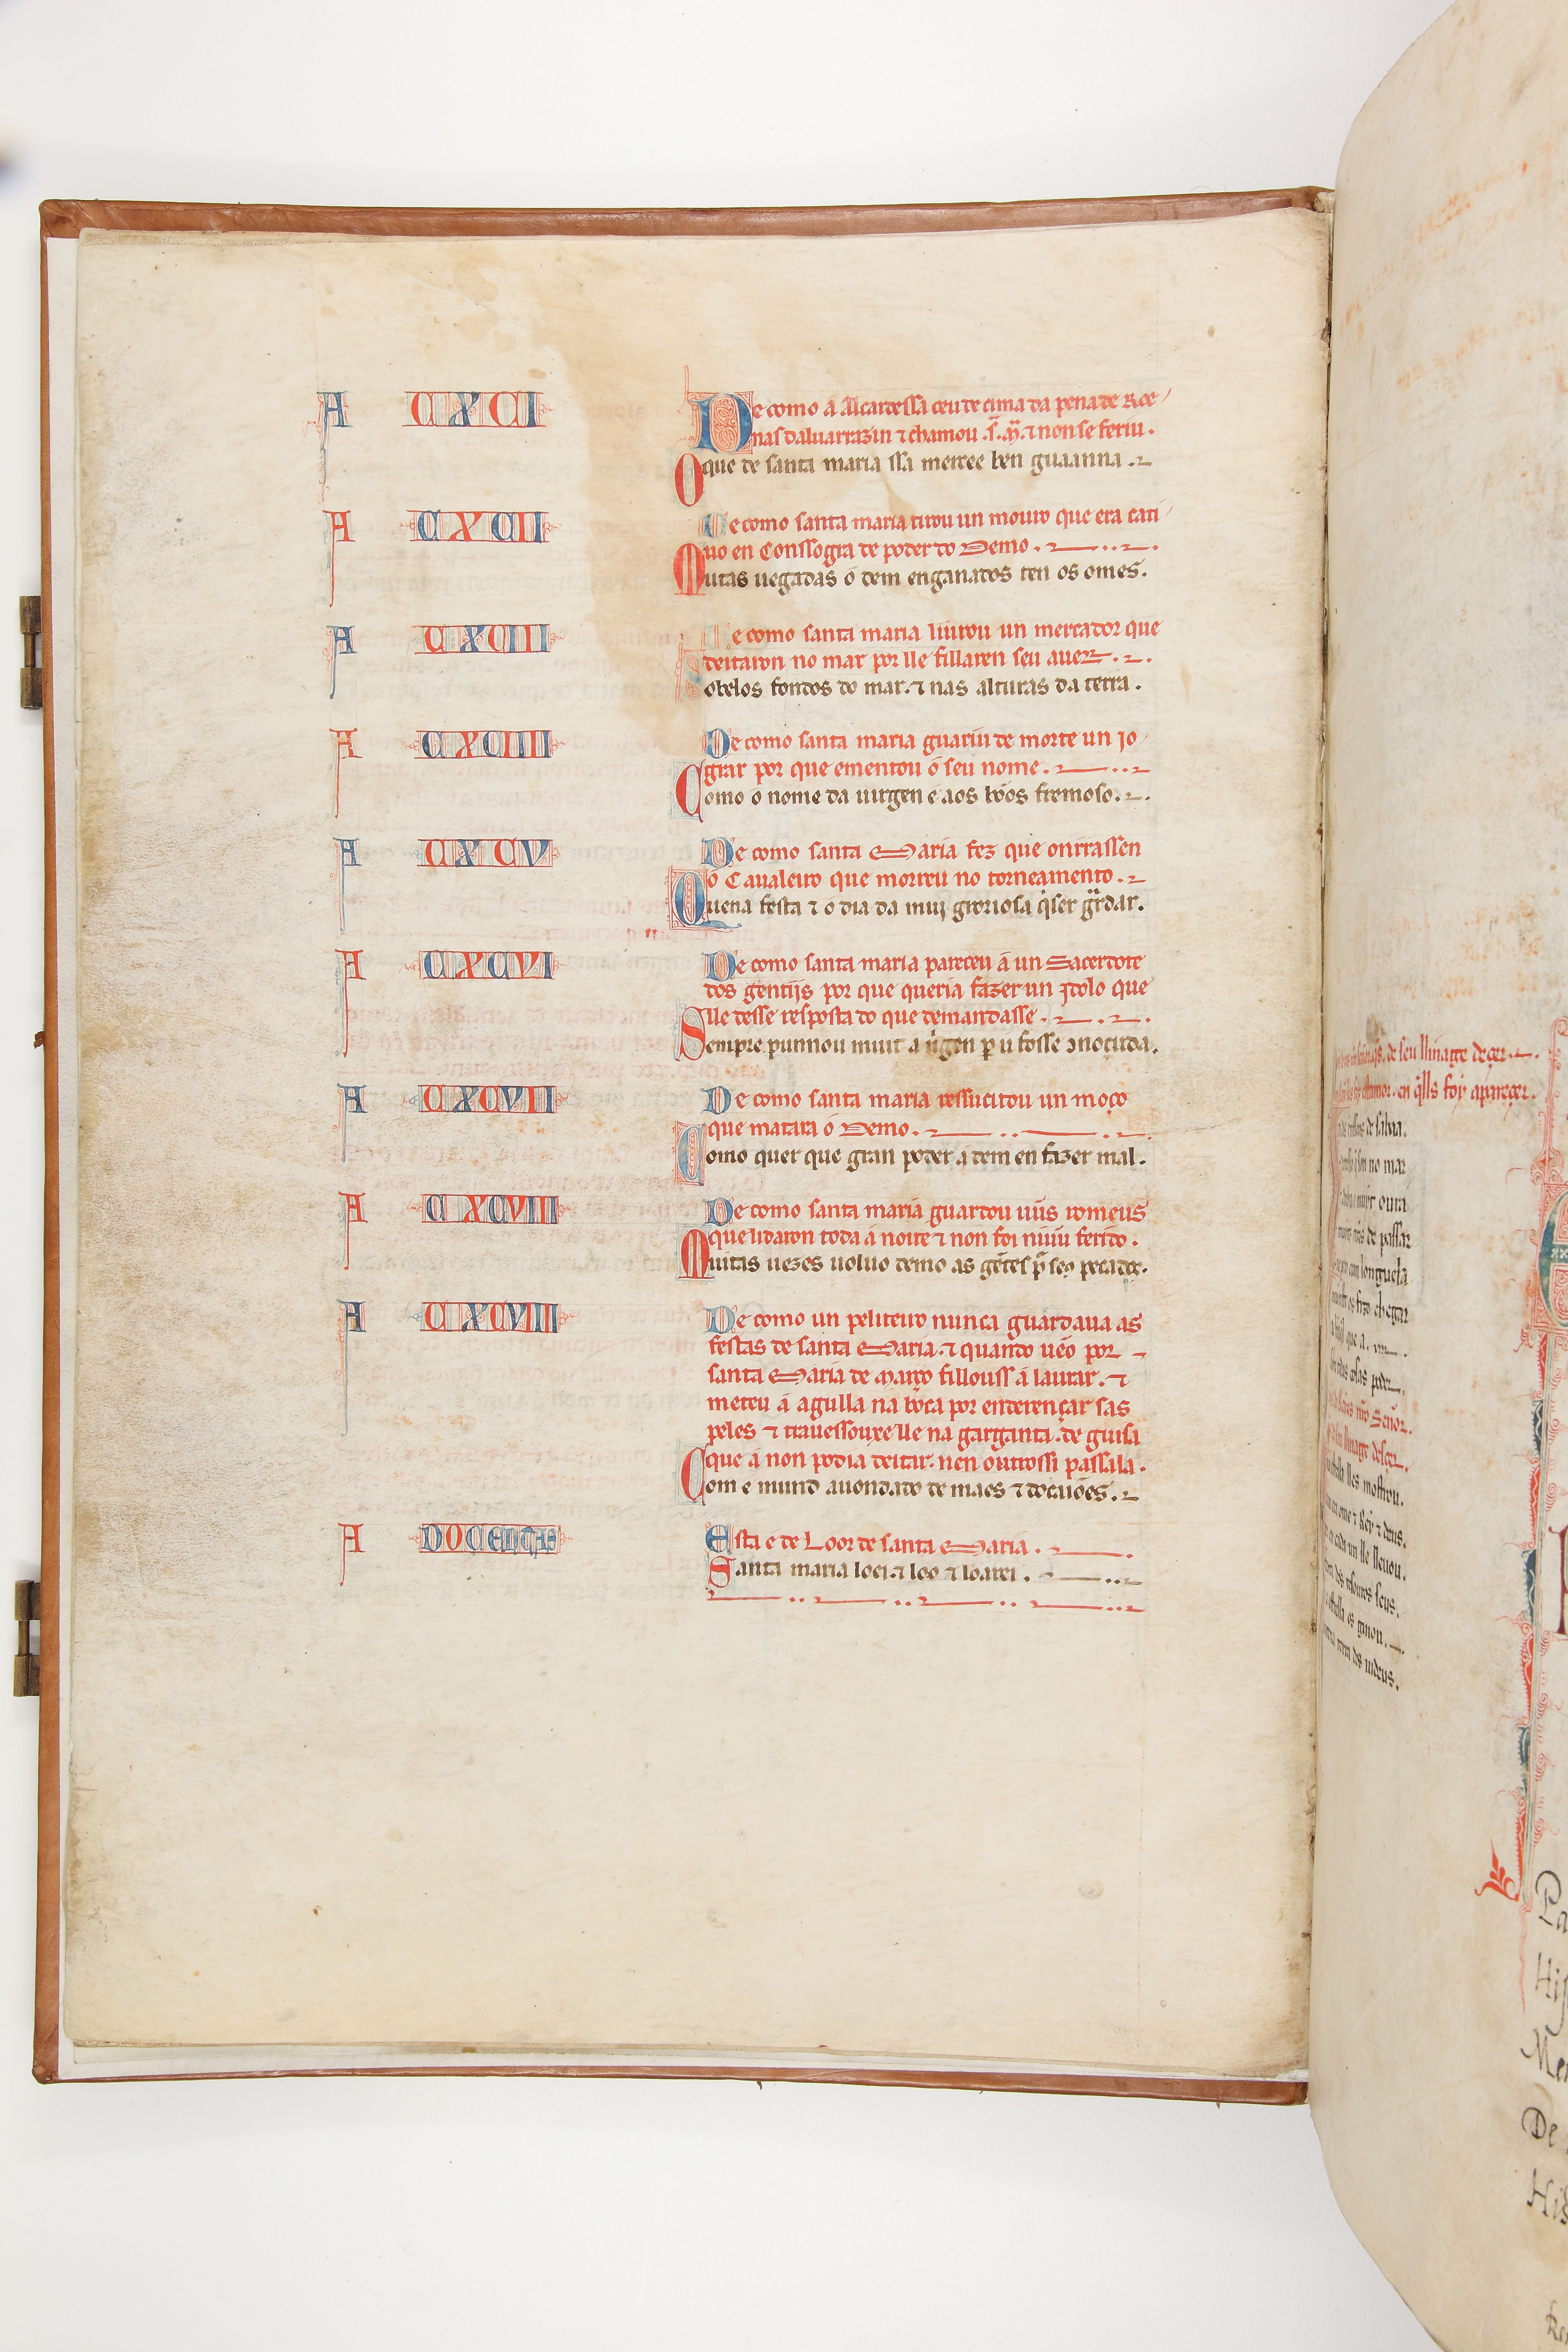 A CXCI
De como a Alcaydessa ceu de cima da pena de Roe
nas daluarrazin ⁊ chamou .s̄. m̄. ⁊ non se feriu.
O que de santa maria ssa mercee ben guaanna.
A CXCII
De como santa maria tirou un mouro que era cati
uo en Conssogra de poder do Demo.
Muitas uegadas o dem enganados ten os omes.
A CXCIII
De como santa maria liurou un mercador que
deitaron no mar por lle fillaren seu auer.
Sobelos fondos do mar. ⁊ nas alturas da terra.
A CXCIIII
De como santa maria guariu de morte un io
grar por que ementou o seu nome.
Como o nome da uirgen e aos bõos fremoso.
A CXCV
De como santa Maria fez que onrrassen
o Caualeiro que morreu no torneamento.
Quena festa ⁊ o dia da mui groriosa q̇ser gr̄dar.
A CXCVI
De como santa maria pareceu a un Sacerdote
dos gentijs por que queria fazer un ydolo que
lle desse resposta do que demandasse.
Sempre punnou muit a uirgen per u fosse ꝯnoçuda.
A CXCVII
De como santa maria ressucitou un moço
que matara o Demo.
Como quer que gran poder a dem en fazer mal.
A CXCVIII
De como santa maria guardou uũs romeus
que lidaron toda a noite ⁊ non foi niũu ferido.
Muitas uezes uoluo demo as gẽtes p̃ seo pecados.
A CXCVIIII
De como un peliteiro nunca guardaua as
festas de santa Maria. ⁊ quando uẽo por
santa Maria de março fillouss a laurar. ⁊
meteu a agulla na boca por enderençar sas
peles ⁊ trauessouxe lle na garganta. de guisa
que a non podia deitar. nen outrossi passala.
Com e mund auondado de maes ⁊ docaiões.
A DOCENTAS
Esta e de Loor de santa Maria.
Santa maria loei. ⁊ loo ⁊ loarei.
de seu llinage deçer.
en q̇lls foy apareçer.